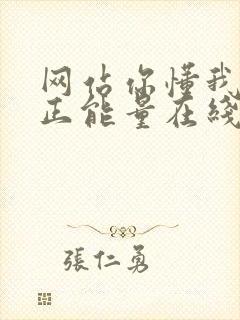 网佔你懂我
正能量在綫
張仁勇